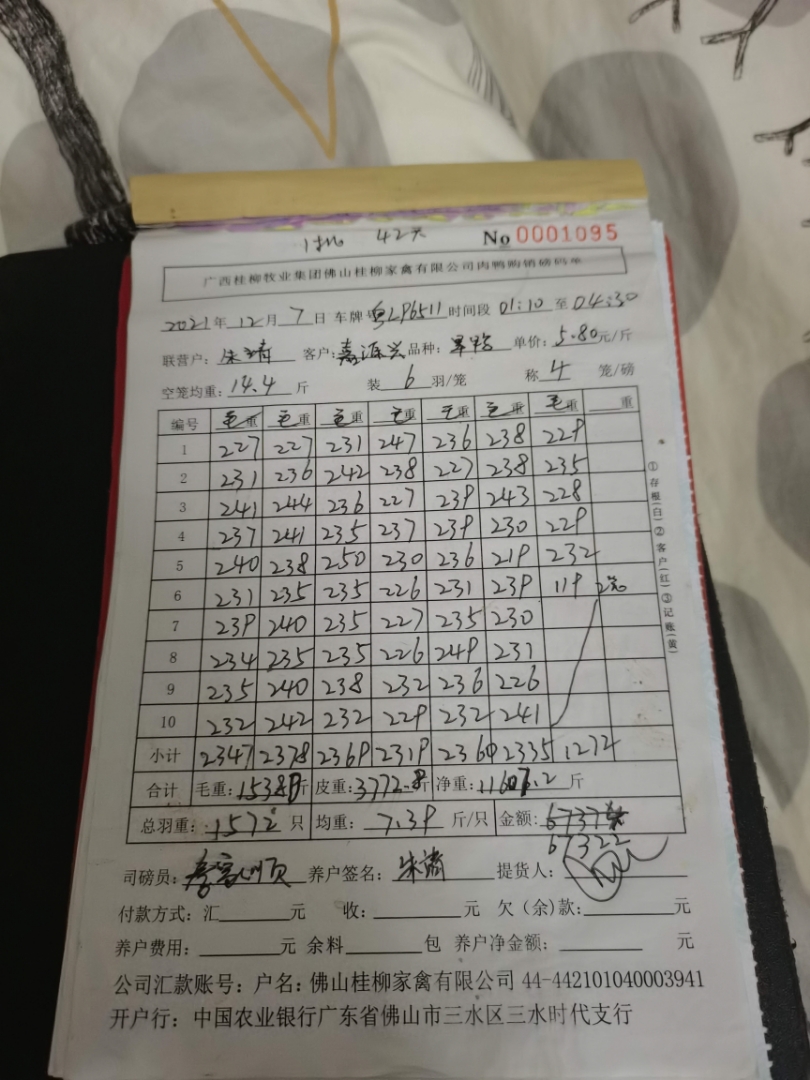 42天 No 0001095
广西桂柳牧业集团佛山桂柳家禽有限公司肉鸭购销磅码单
2021年 12月 7日 车牌 粤LP6511 时间段 01:10 至 04:30
联营户: 朱清 客户: 嘉源兴 品种: 单价: 5.80 元/斤
空笼均重: 14.4 斤 装 6 羽/笼 称 4 笼/磅
编号 毛重 毛重 毛重 毛重 毛重 毛重 毛重 重
1 227 227 231 247 236 238 229
2 231 236 242 238 227 238 235
3 241 244 236 227 239 243 228
4 237 241 235 237 239 230 229
5 240 238 250 230 236 219 232
6 231 235 235 226 231 239 119
7 239 240 235 227 235 230
8 234 235 235 226 249 231
9 235 240 238 232 236 226
10 232 242 232 229 232 241
小计 2347 2378 2369 2319 2360 2335 1272
合计 毛重: 15380斤 皮重: 3772.8斤 净重: 11607.2 斤
总羽重: 1572 只 均重: 7.39 斤/只 金额:
67322
司磅员: 养户签名: 朱清 提货人:
付款方式: 汇 元 收: 元 欠(余)款: 元
养户费用: 元 余料 包 养户净金额: 元
公司汇款账号: 户名: 佛山桂柳家禽有限公司 44-442101040003941
开户行: 中国农业银行广东省佛山市三水区三水时代支行
①存根(白)②客户(红)③记账(黄)